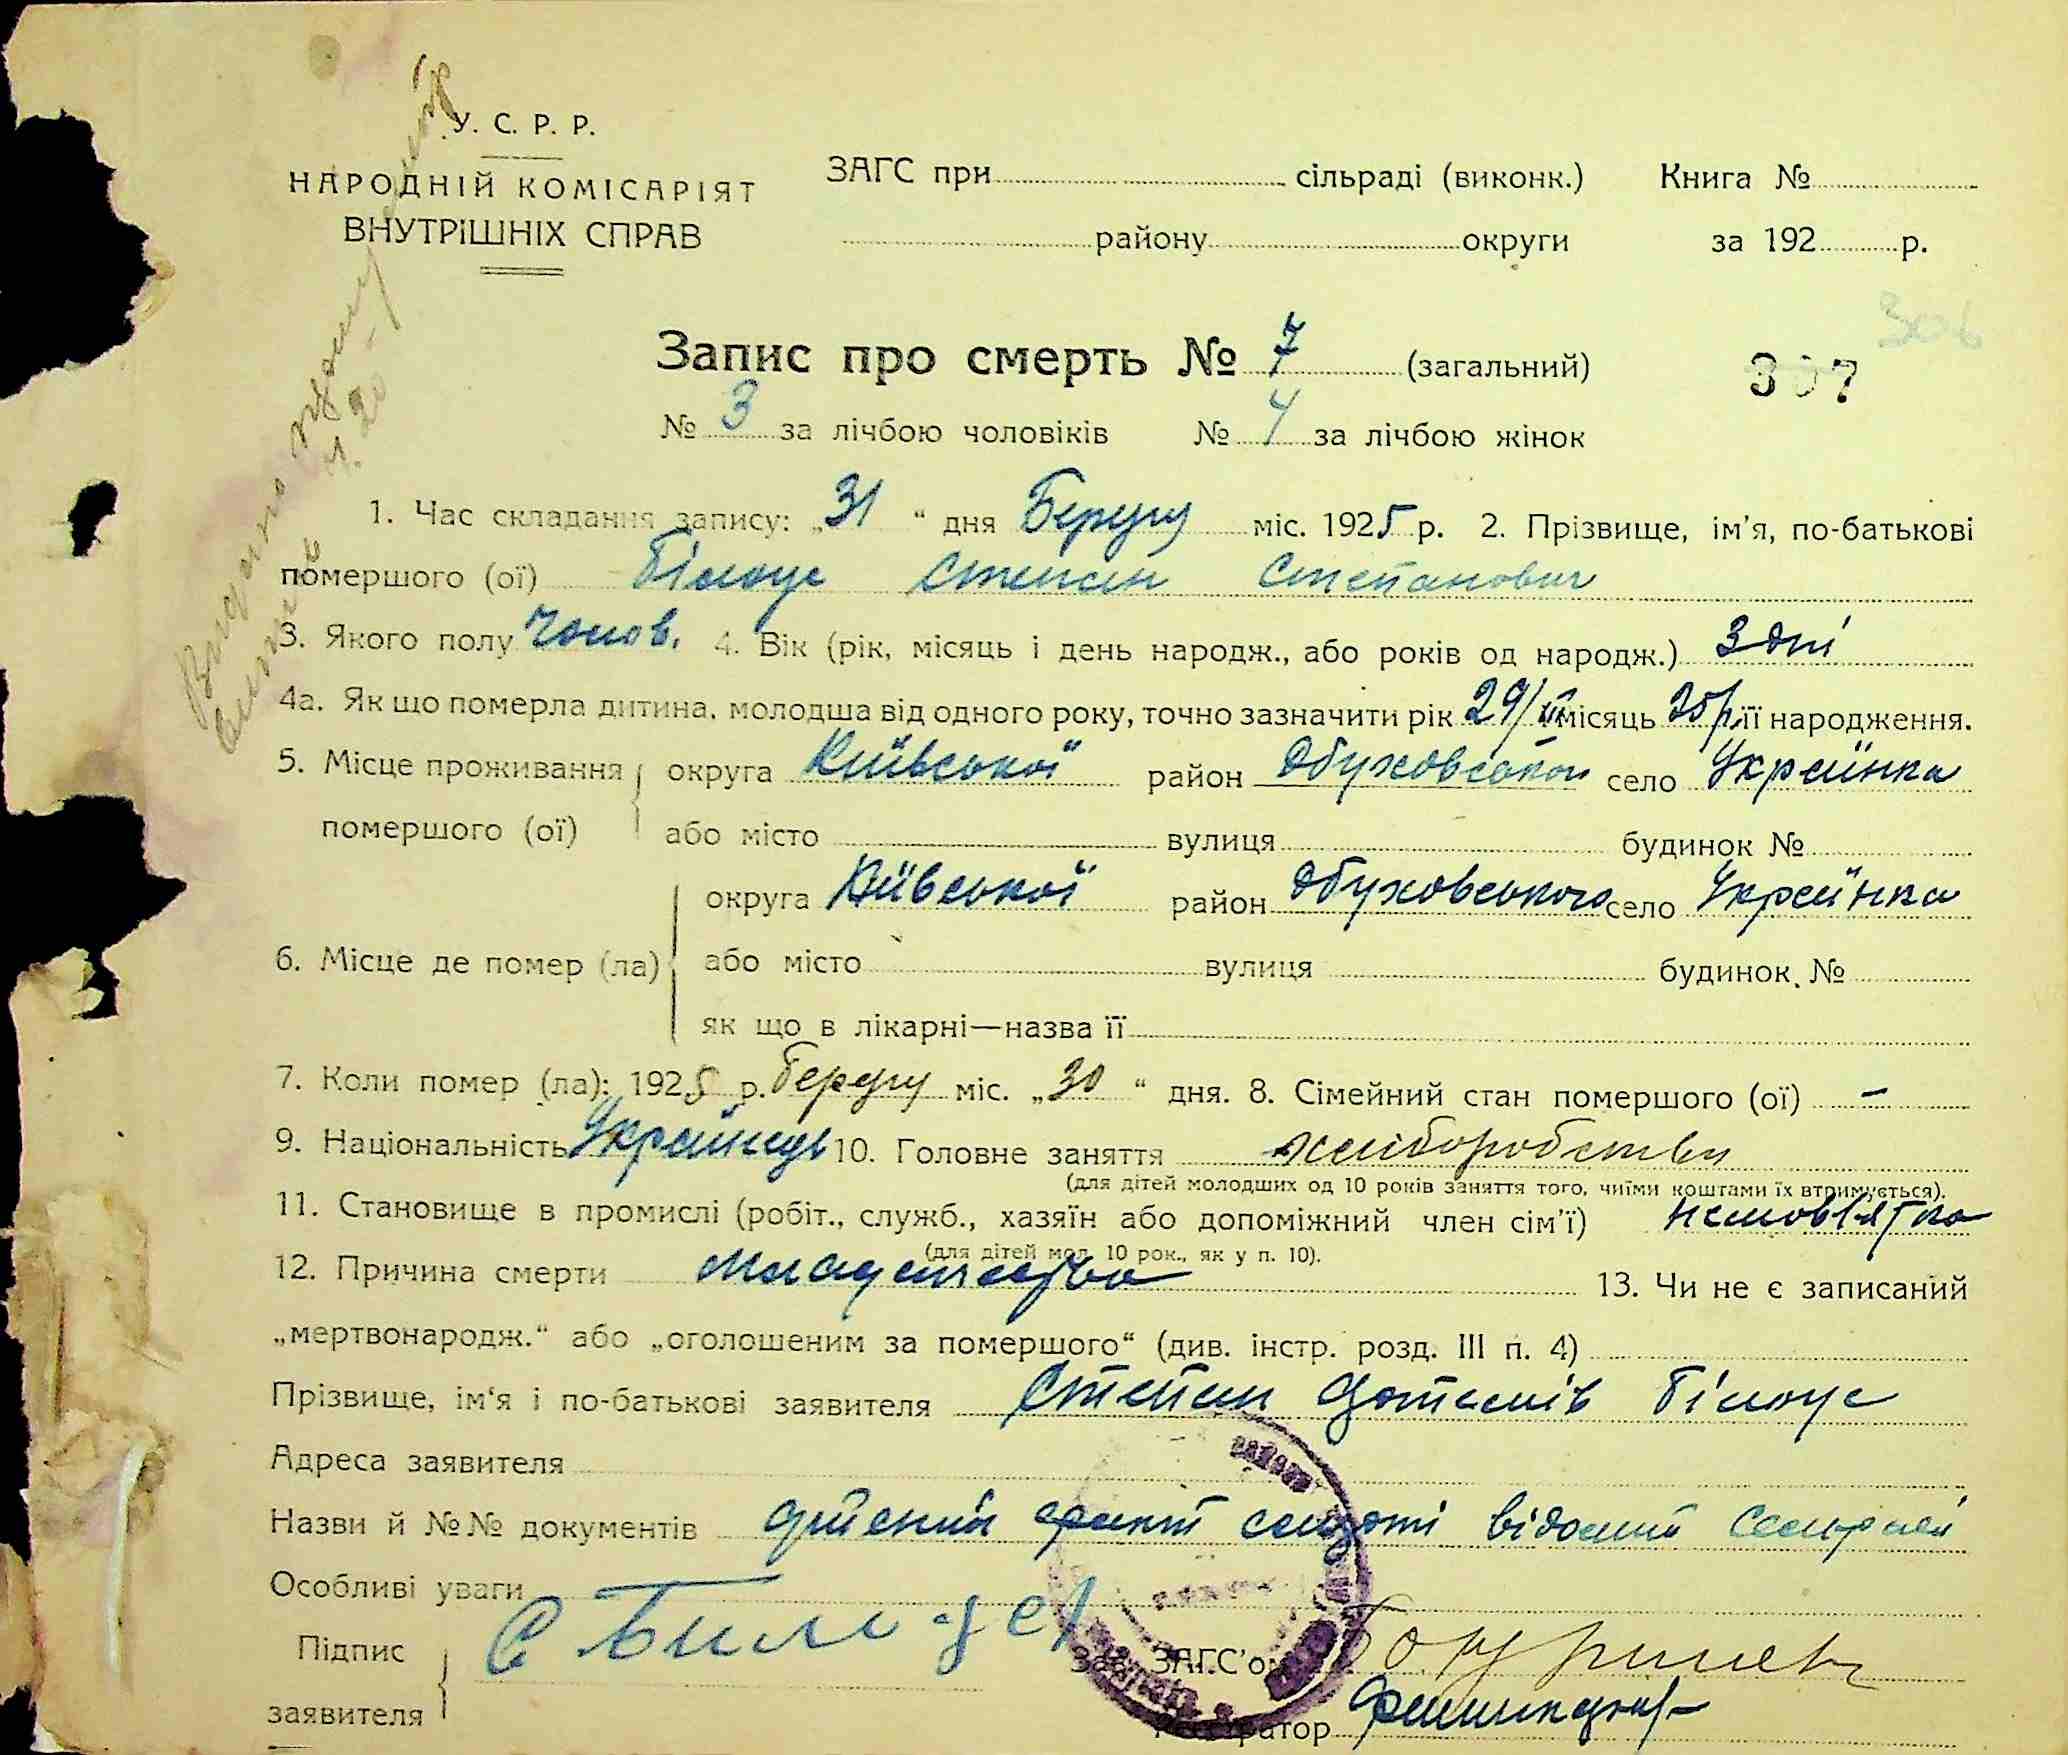 У. С. Р. Р.
НАРОДНІЙ КОМІСАРІЯТ
ВНУТРІШНІХ СПРАВ
ЗАГС при сільраді (виконк.) Книга №
району округи за 192 р.
306
Запис про смерть № 7 (загальний) 307
№ 3 за лічбою чоловіків № 4 за лічбою жінок
1. Час складання запису: „31“ дня Березу міс. 1925 р. 2. Прізвище, ім’я, по-батькові
помершого (ої) Білоус Степан Степанович
3. Якого полу чолов. 4. Вік (рік, місяць і день народж., або років од народж.) 3 дні
4а. Як що померла дитина, молодша від одного року, точно зазначити рік 29/III місяць 25 р. її народження.
5. Місце проживання округа Київської район Обуховський село Українка
помершого (ої) або місто вулиця будинок №
округа Київської район Обуховського село Українка
6. Місце де помер (ла) або місто вулиця будинок №
як що в лікарні—назва її
7. Коли помер (ла): 1925 р. березу міс. „30“ дня. 8. Сімейний стан помершого (ої) –
9. Національність Українець 10. Головне заняття хліборобство
(для дітей молодших од 10 років заняття того, чиїми коштами їх втримується).
11. Становище в промислі (робіт., служб., хазяїн або допоміжний член сім’ї) немовлятко
(для дітей мол. 10 рок., як у п. 10).
12. Причина смерти 13. Чи не є записаний
„мертвонародж.“ або „оголошеним за помершого“ (див. інстр. розд. III п. 4)
Прізвище, ім‘я і по-батькові заявителя Степан Білоус
Адреса заявителя
Назви й №№ документів дійсний факт смерті відомий Сельраді
Особливі уваги
Підпис
заявителя
Зав. ЗАГС’ом
Реєстратор